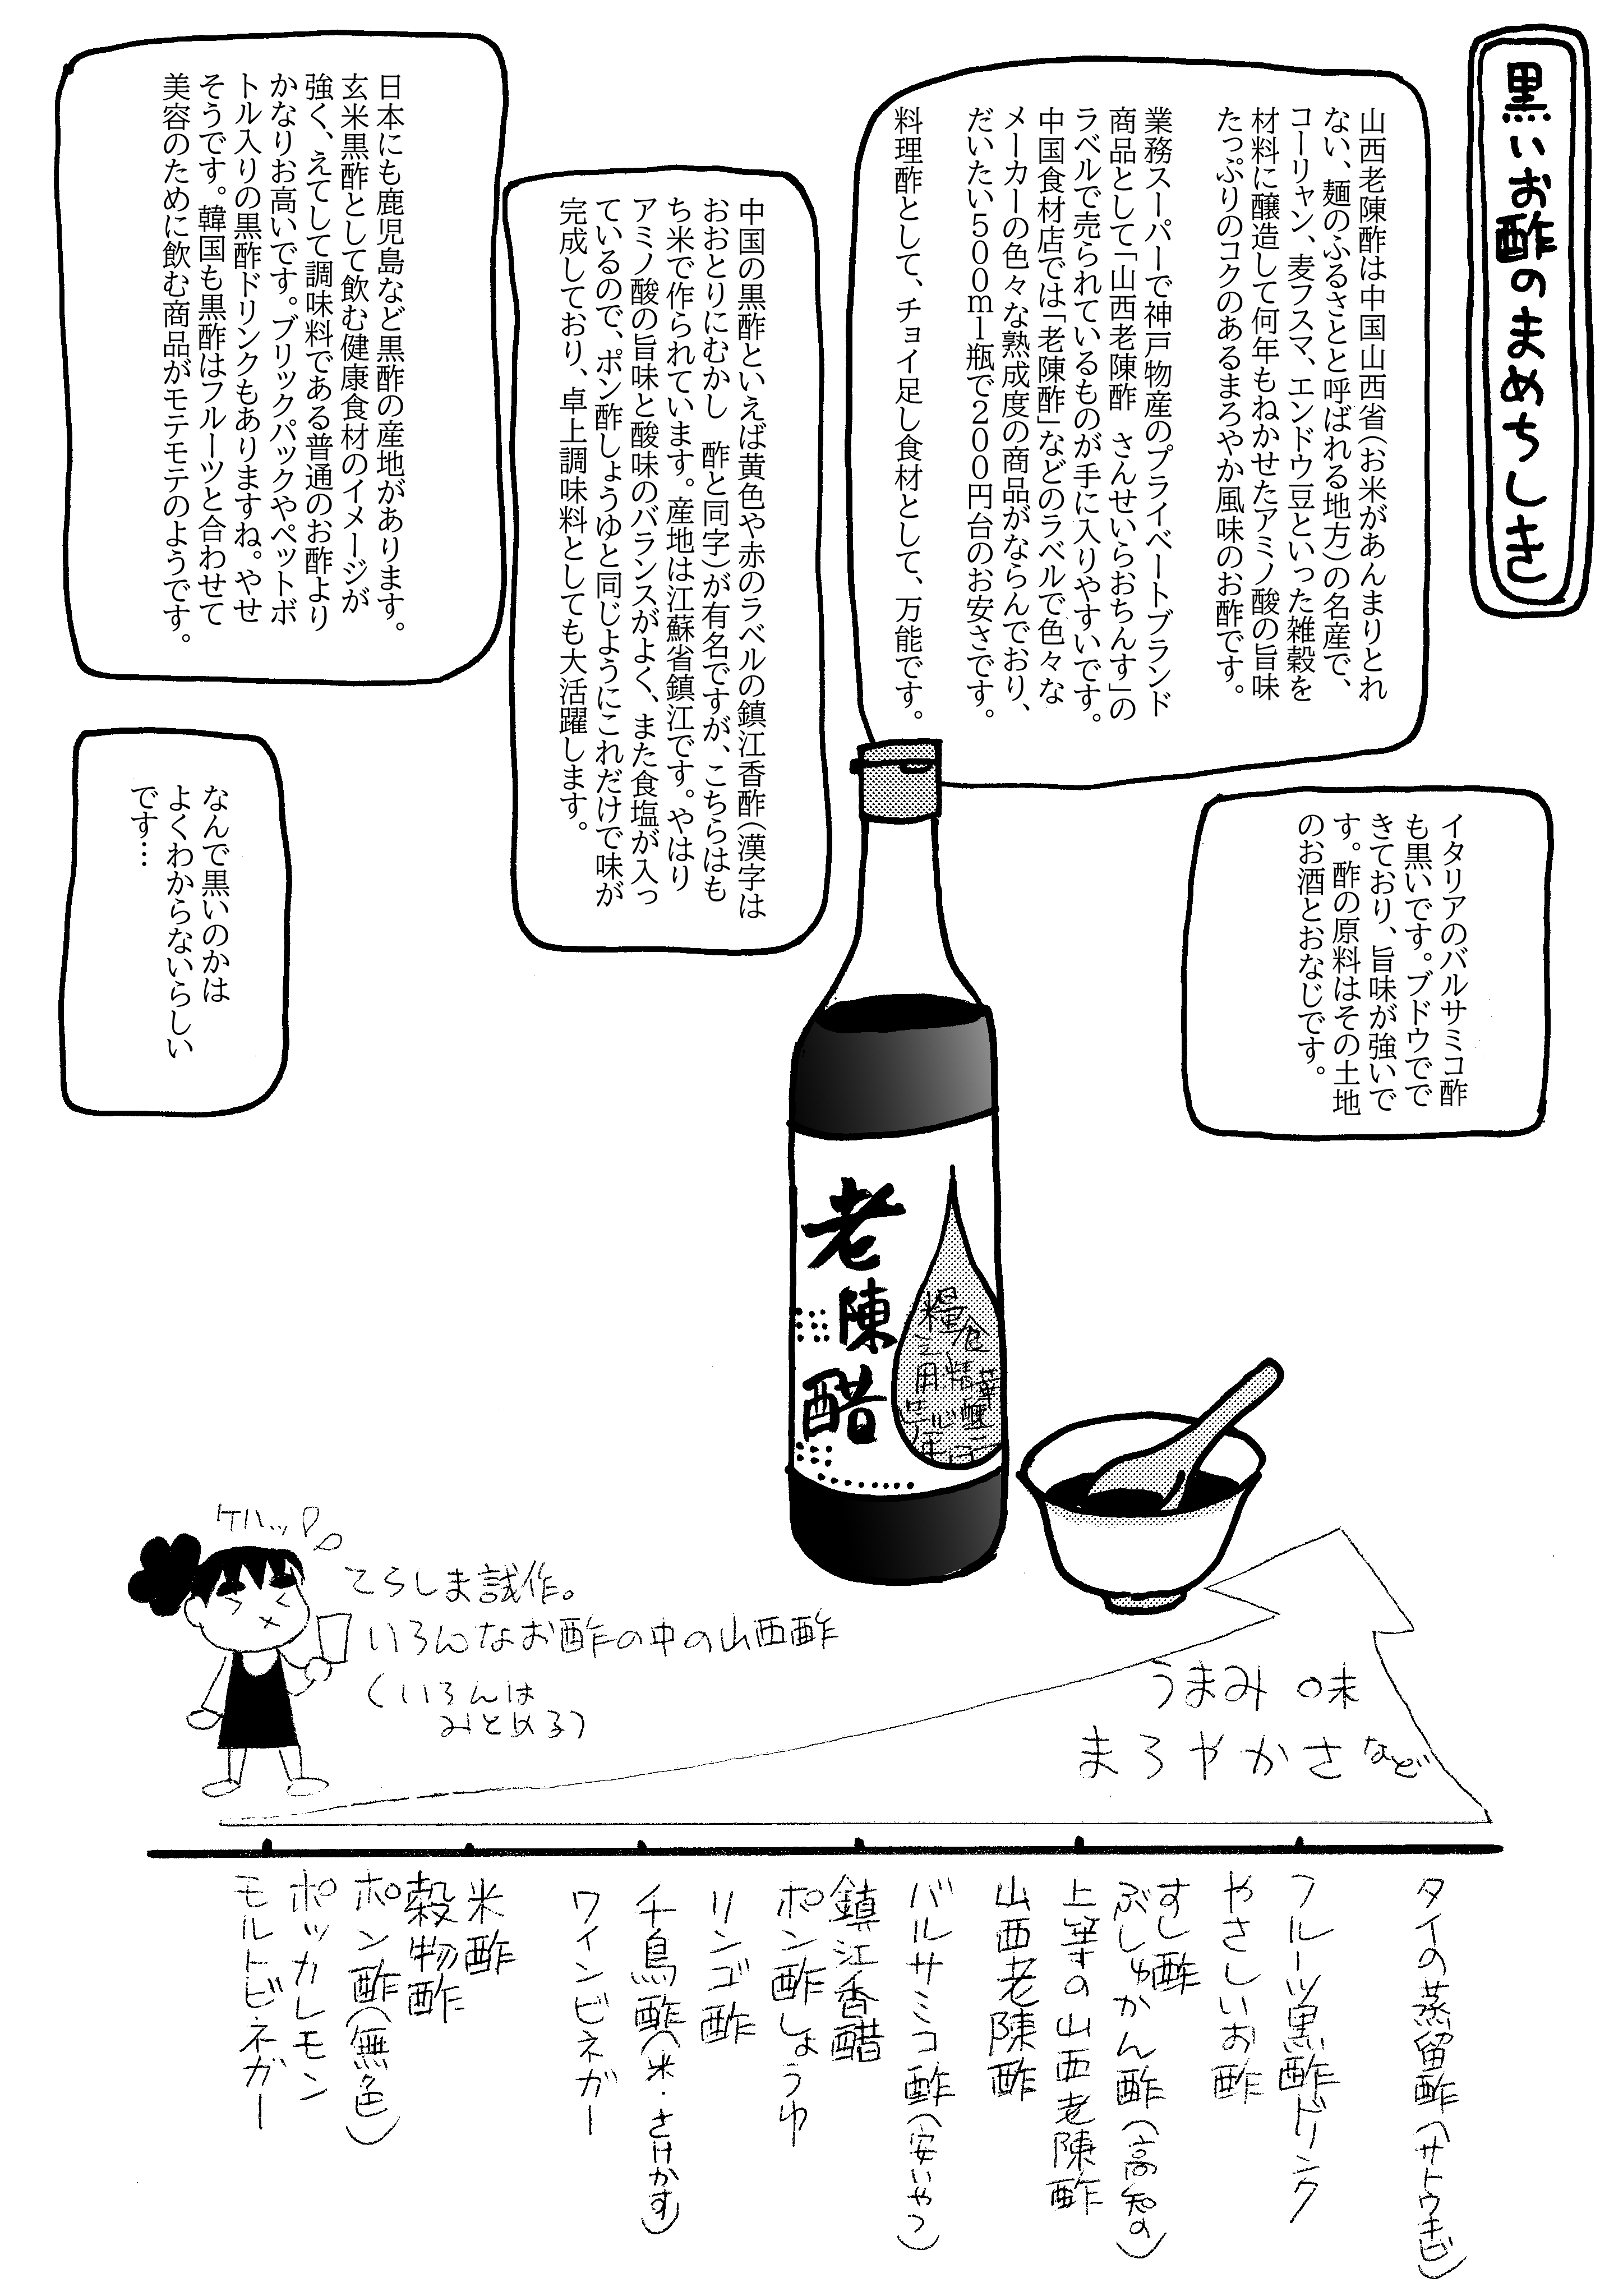 黒いお酢のまめちしき
山西老陳酢は中国山西省（お米があんまりとれ
ない、麺のふるさとと呼ばれる地方）の名産で、
コーリャン、麦フスマ、エンドウ豆といった雑穀を
材料に醸造して何年もねかせたアミノ酸の旨味
たっぷりのコクのあるまろやか風味のお酢です。
業務スーパーで神戸物産のプライベートブランド
商品として「山西老陳酢　さんせいらおちんす」の
ラベルで売られているものが手に入りやすいです。
中国食材店では「老陳酢」などのラベルで色々な
メーカーの色々な熟成度の商品がならんでおり、
だいたい５００ｍｌ瓶で２００円台のお安さです。
料理酢として、チョイ足し食材として、万能です。
中国の黒酢といえば黄色や赤のラベルの鎮江香酢（漢字は
おおとりにむかし　酢と同字）が有名ですが、こちらはも
ち米で作られています。産地は江蘇省鎮江です。やはり
アミノ酸の旨味と酸味のバランスがよく、また食塩が入っ
ているので、ポン酢しょうゆと同じようにこれだけで味が
完成しており、卓上調味料としても大活躍します。
日本にも鹿児島など黒酢の産地があります。
玄米黒酢として飲む健康食材のイメージが
強く、えてして調味料である普通のお酢より
かなりお高いです。ブリックパックやペットボ
トル入りの黒酢ドリンクもありますね。やせ
そうです。韓国も黒酢はフルーツと合わせて
美容のために飲む商品がモテモテのようです。
イタリアのバルサミコ酢
も黒いです。ブドウでで
きており、旨味が強いで
す。酢の原料はその土地
のお酒とおなじです。
なんで黒いのかは
よくわからないらしい
です…
老陳醋
ケハッ
てらしま試作。
いろんなお酢の中の山西酢
（いろんは
みとめる）
うまみ 味
まろやかさなど
タイの蒸留酢（サトウキビ）
フルーツ黒酢ドリンク
やさしいお酢
すし酢
ぶしゅかん酢（高知の）
上等の山西老陳酢
山西老陳酢
バルサミコ酢（安いやつ）
鎮江香醋
ポン酢しょうゆ
リンゴ酢
千鳥酢（米・さけかす）
ワインビネガー
米酢
穀物酢
ポン酢（無色）
ポッカレモン
モルトビネガー